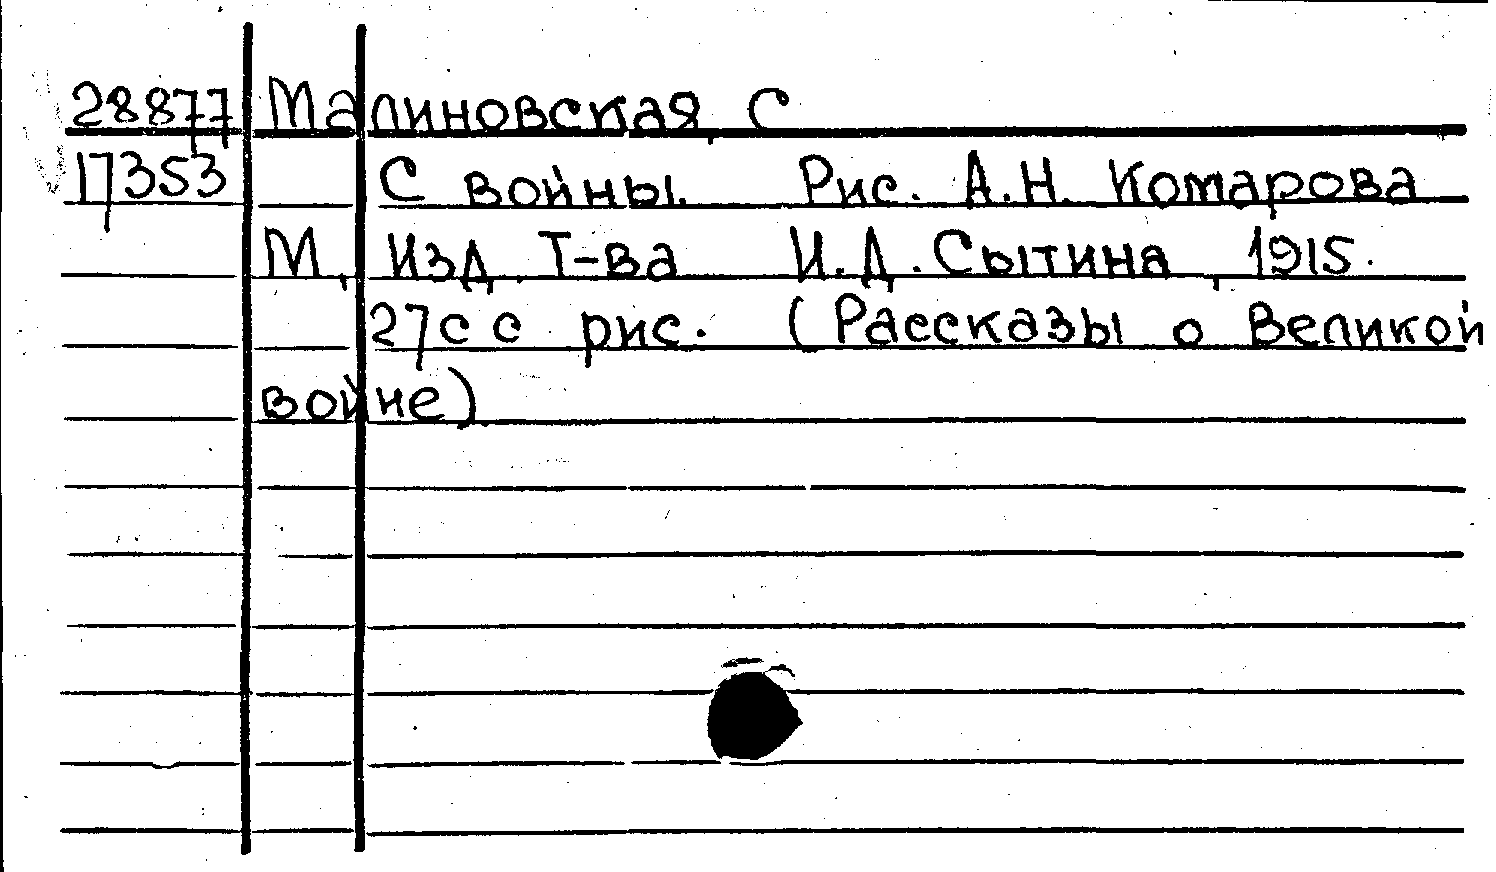 28877 Малиновская, С
17353 С войны. Рис. А.Н. Комарова
М, Изд. Т-ва И.Д.Сытина, 1915.
27с с рис. (Рассказы о Великой
войне)